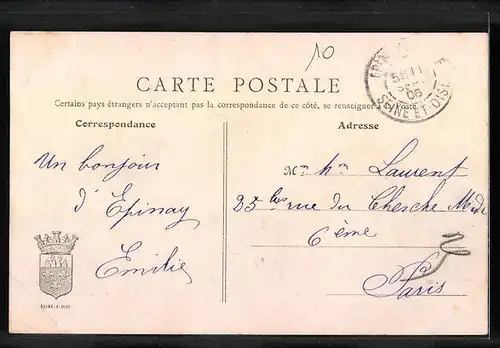 10
CARTE POSTALE
Certains pays étrangers n'acceptant pas la correspondance de ce côté, se renseigner à la Poste.
Correspondance
Adresse
Un bonjour
d'Epinay
Emilie
Laurent
25 bis rue du Cherche Midi
6ème
Paris
SEINE-ET-OISE
06